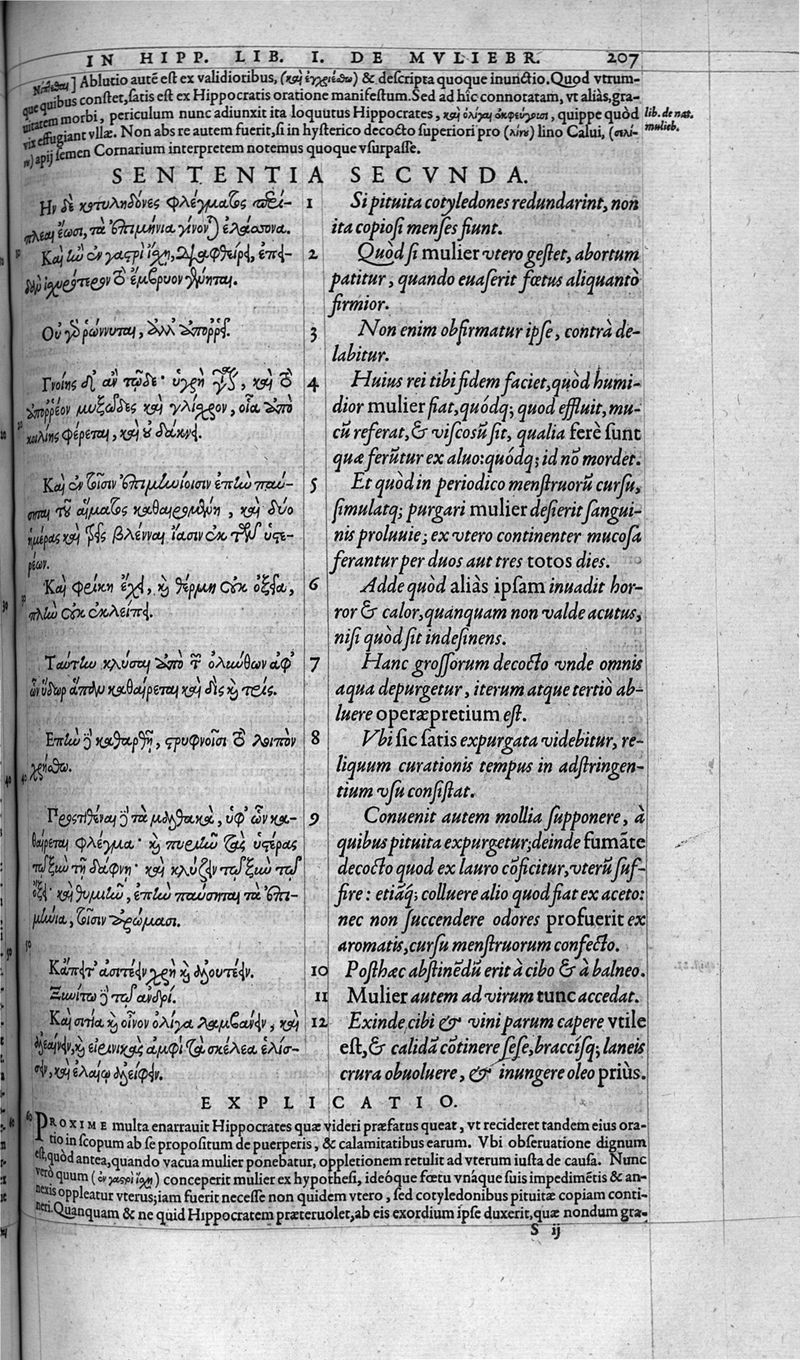 IN HIPP. LIB. I. DE MVLIEBR. 207
] Ablutio autẽ est ex validioribus, (καὶ ἐγχριέσθω) & descripta quoque inunctio. Quod vtrum-
que quibus constet, satis est ex Hippocratis oratione manifestum. Sed ad hîc connotatam, vt aliàs, gra-
uitatem morbi, periculum nunc adiunxit ita loquutus Hippocrates, καὶ ὀλίγαι ἐκφεύγουσι, quippe quòd
lib. de nat.
mulieb.
vix effugiant vllæ. Non abs re autem fuerit, si in hysterico decocto superiori pro (λίνου) lino Calui, (σελί-
νου) apij semen Cornarium interpretem notemus quoque vsurpasse.
SENTENTIA SECVNDA.
Ην δὲ κοτυληδόνες φλέγματος περί-
πλεαι ἔωσι, τὰ ἐπιμήνια γίνονται ἐλάσσονα.
Καὶ ἢν ἐν γαστρὶ ἴχῃ, διαφθείρει, ἐπει-
δὰν ἰσχυρότερον τὸ ἔμβρυον γένηται.
Οὐ γὰρ ῥώννυται, ἀλλ' ἀποῤῥεῖ.
Γνοίης δ' ἂν τῷδε· ὑγρὴ γίνεται, καὶ τὸ
ἀποῤῥέον μυξῶδες καὶ γλίσχρον, οἷα ἀπὸ
κοιλίης φέρεται, καὶ οὐ δάκνει.
Καὶ ἐν τοῖσιν ἐπιμηνίοισιν ἐπὴν παύ-
σηται τοῦ αἵματος καθαιρομένη, καὶ δύο
ἡμέρας καὶ τρεῖς βλένναι ἴασιν ἐκ τῶν ὑστε-
ρέων.
Καὶ φρίκη ἔχει, καὶ θέρμη οὐκ ὀξέα,
πλὴν οὐκ ἐκλείπει.
Ταύτην κλύσαι ἀπὸ τῶν ὀλύνθων ἀφ'
ὧν ὕδωρ ἅπαν καθαίρεται καὶ δὶς καὶ τρίς.
Επὴν δὲ καθαρθῇ, στρυφνοῖσι τὸ λοιπὸν
χρῆσθω.
Προστιθέναι δὲ τὰ μαλθακὰ, ὑφ' ὧν κα-
θαίρεται φλέγμα· καὶ πυριῆν τὰς ὑστέρας
τῷ ξὺν τῇ δάφνῃ· καὶ κλύζειν τῷ ξὺν τῷ
ὄξει· καὶ θυμιῆν, ἐπὴν παύσηται τὰ ἐπι-
μήνια, τοῖσιν ἀρώμασι.
Κἄπειτ' ἀσιτέειν χρὴ καὶ ἀλουτέειν.
Ξυνίτω δὲ τῷ ἀνδρί.
Καὶ σιτία καὶ οἶνον ὀλίγα λαμβάνειν, καὶ
ἀλεαίνειν, καὶ εἰρινικοῖς ἀμφὶ τὰ σκέλεα ἑλίσ-
σειν, καὶ ἐλαίῳ ἀλείφειν.
1 Si pituita cotyledones redundarint, non
ita copiosi menses fiunt.
2 Quòd si mulier vtero gestet, abortum
patitur, quando euaserit fœtus aliquantò
firmior.
3 Non enim obfirmatur ipse, contrà de-
labitur.
4 Huius rei tibi fidem faciet, quòd humi-
dior mulier fiat, quódq; quod effluit, mu-
cũ referat, & viscosũ sit, qualia ferè sunt
quæ ferũtur ex aluo: quódq; id nõ mordet.
5 Et quòd in periodico menstruorũ cursu,
simulatq; purgari mulier desierit sangui-
nis proluuie; ex vtero continenter mucosa
ferantur per duos aut tres totos dies.
6 Adde quòd aliàs ipsam inuadit hor-
ror & calor, quanquam non valde acutus,
nisi quòd sit indesinens.
7 Hanc grossorum decocto vnde omnis
aqua depurgetur, iterum atque tertiò ab-
luere operæpretium est.
8 Vbi sic satis expurgata videbitur, re-
liquum curationis tempus in adstringen-
tium vsu consistat.
9 Conuenit autem mollia supponere, à
quibus pituita expurgetur; deinde fumãte
decocto quod ex lauro cõficitur, vterũ suf-
fire: etiãq; colluere alio quod fiat ex aceto:
nec non succendere odores profuerit ex
aromatis, cursu menstruorum confecto.
10 Posthac abstinẽdũ erit à cibo & à balneo.
11 Mulier autem ad virum tunc accedat.
12 Exinde cibi & vini parum capere vtile
est, & calidã cõtinere sese, braccisq; laneis
crura obuoluere, & inungere oleo priùs.
EXPLICATIO.
PROXIME multa enarrauit Hippocrates quæ videri præfatus queat, vt recideret tandem eius ora-
tio in scopum ab se propositum de puerperis, & calamitatibus earum. Vbi obseruatione dignum
est, quòd antea, quando vacua mulier ponebatur, oppletionem retulit ad vterum iusta de causa. Nunc
vero quum (ἐν γαστρὶ ἴχῃ) conceperit mulier ex hypothesi, ideóque fœtu vnáque suis impedimẽtis & an-
nexis oppleatur vterus; iam fuerit necesse non quidem vtero, sed cotyledonibus pituitæ copiam conti-
neri. Quanquam & ne quid Hippocratem præteruolet, ab eis exordium ipse duxerit, quæ nondum gra-
S ij